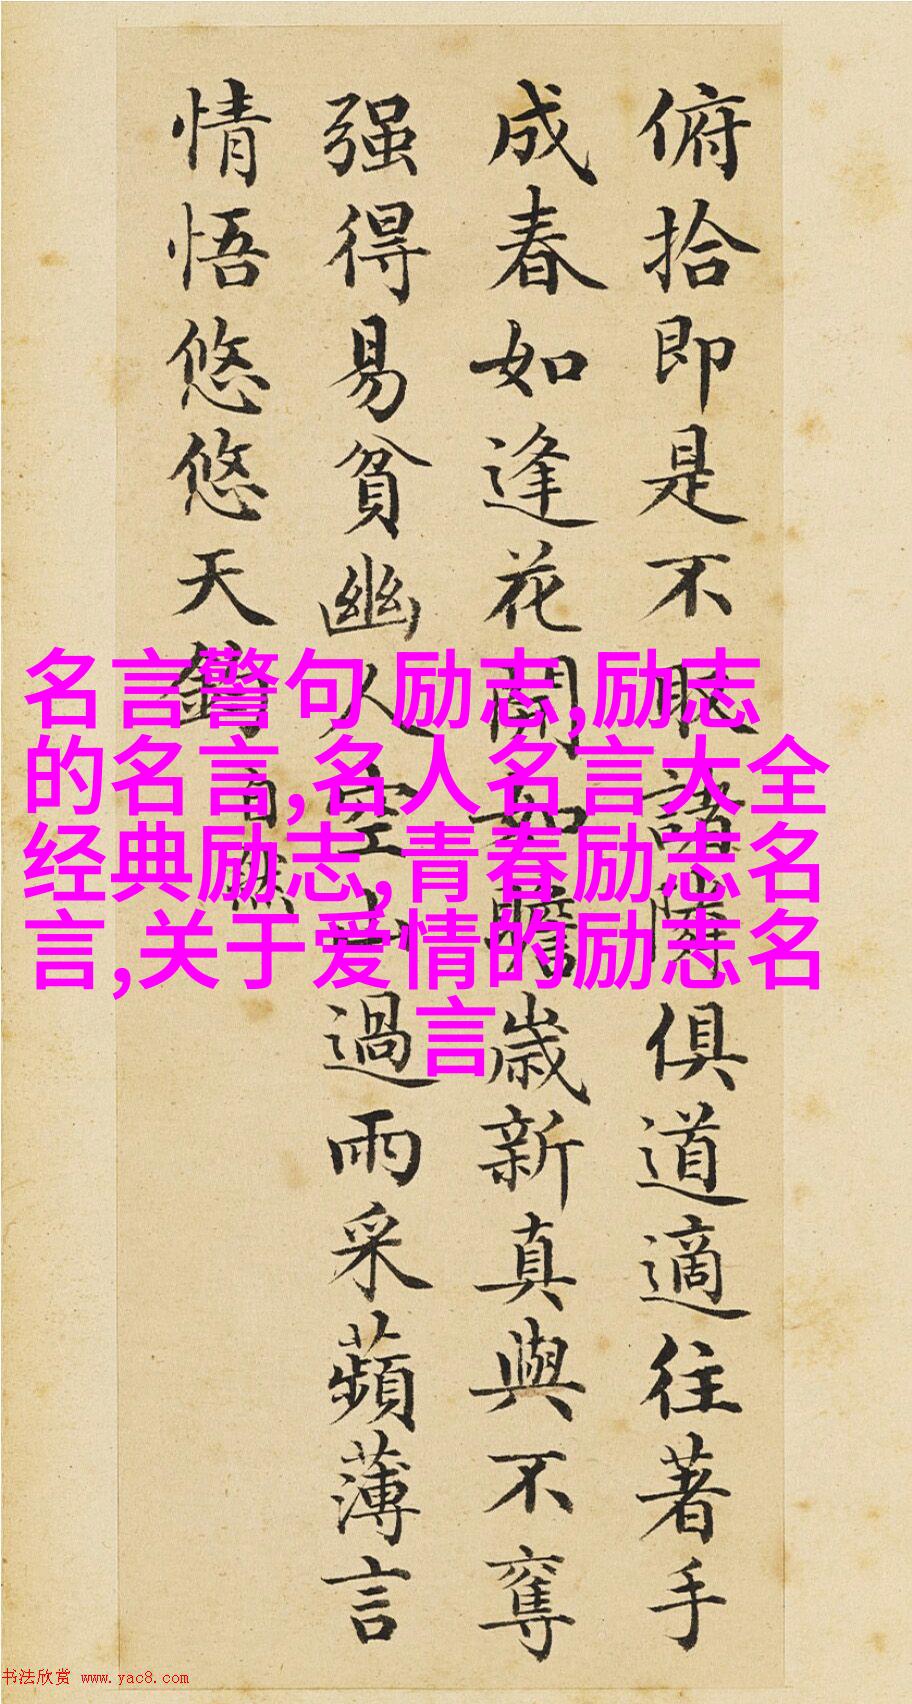 俯拾即是不取諸隣俱道適往著手
成春如逢花開如瞻歲新真與不奪
强得易貧幽人空山過雨采蘋薄言
情悟悠悠天鈞自然
名言警句 励志,励志
的名言,名人名言大全
经典励志,青春励志名
言,关于爱情的励志名
言
书法欣赏 www.yac8.com